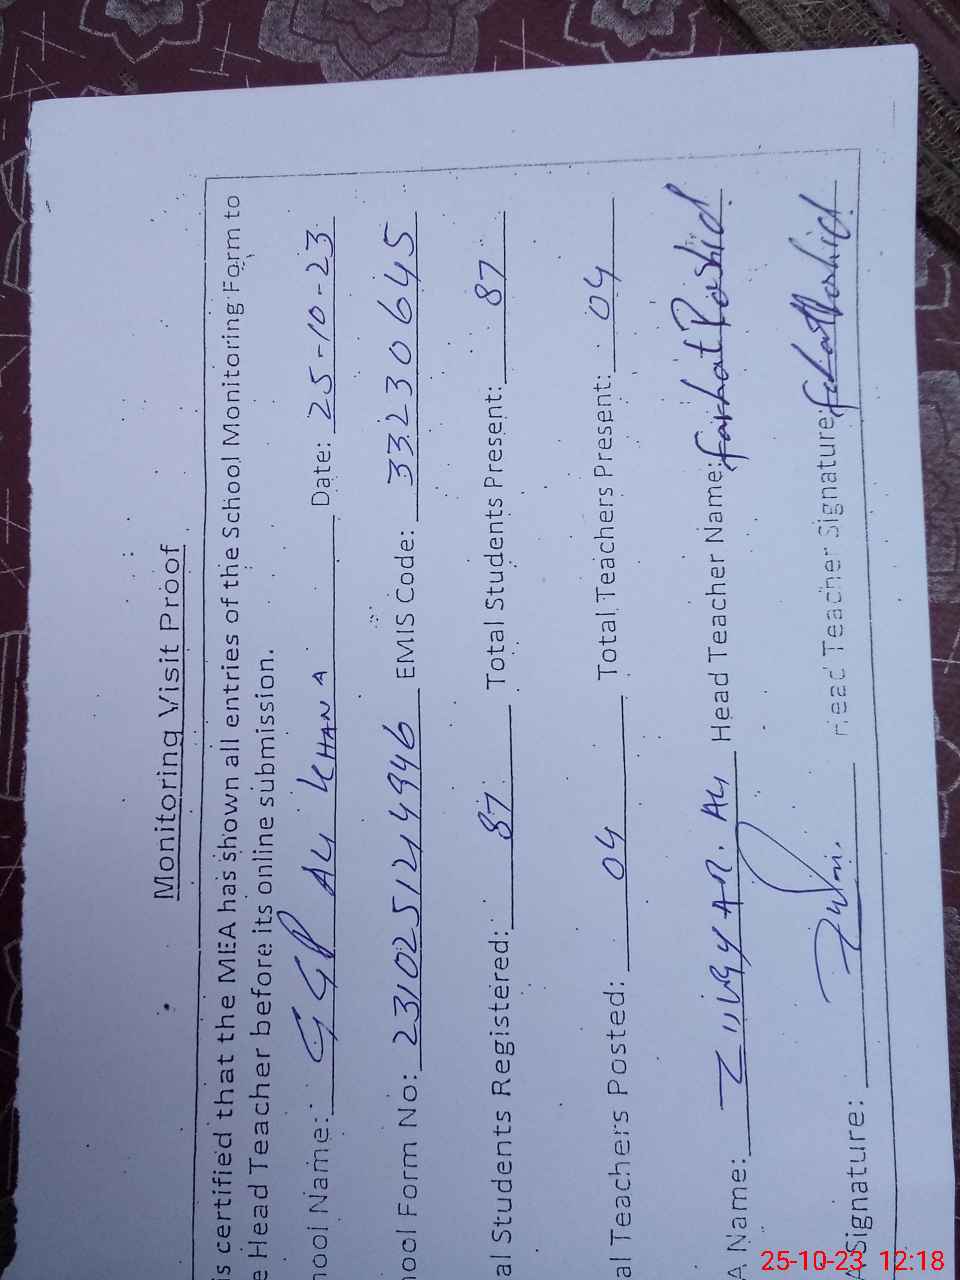 Monitoring Visit Proof
is certified that the MEA has shown all entries of the School Monitoring Form to
e Head Teacher before its online submission.
hool Name: GGP ALI KHANA Date: 25-10-23
hool Form No: 2310251214946 EMIS Code: 33230645
al Students Registered: 87 Total Students Present: 87
al Teachers Posted: 04 Total Teachers Present: 04
A Name: ALI Head Teacher Name: Farhat Rashid
A Signature: Head Teacher Signature: Farhat Rashid
25-10-23 12:18